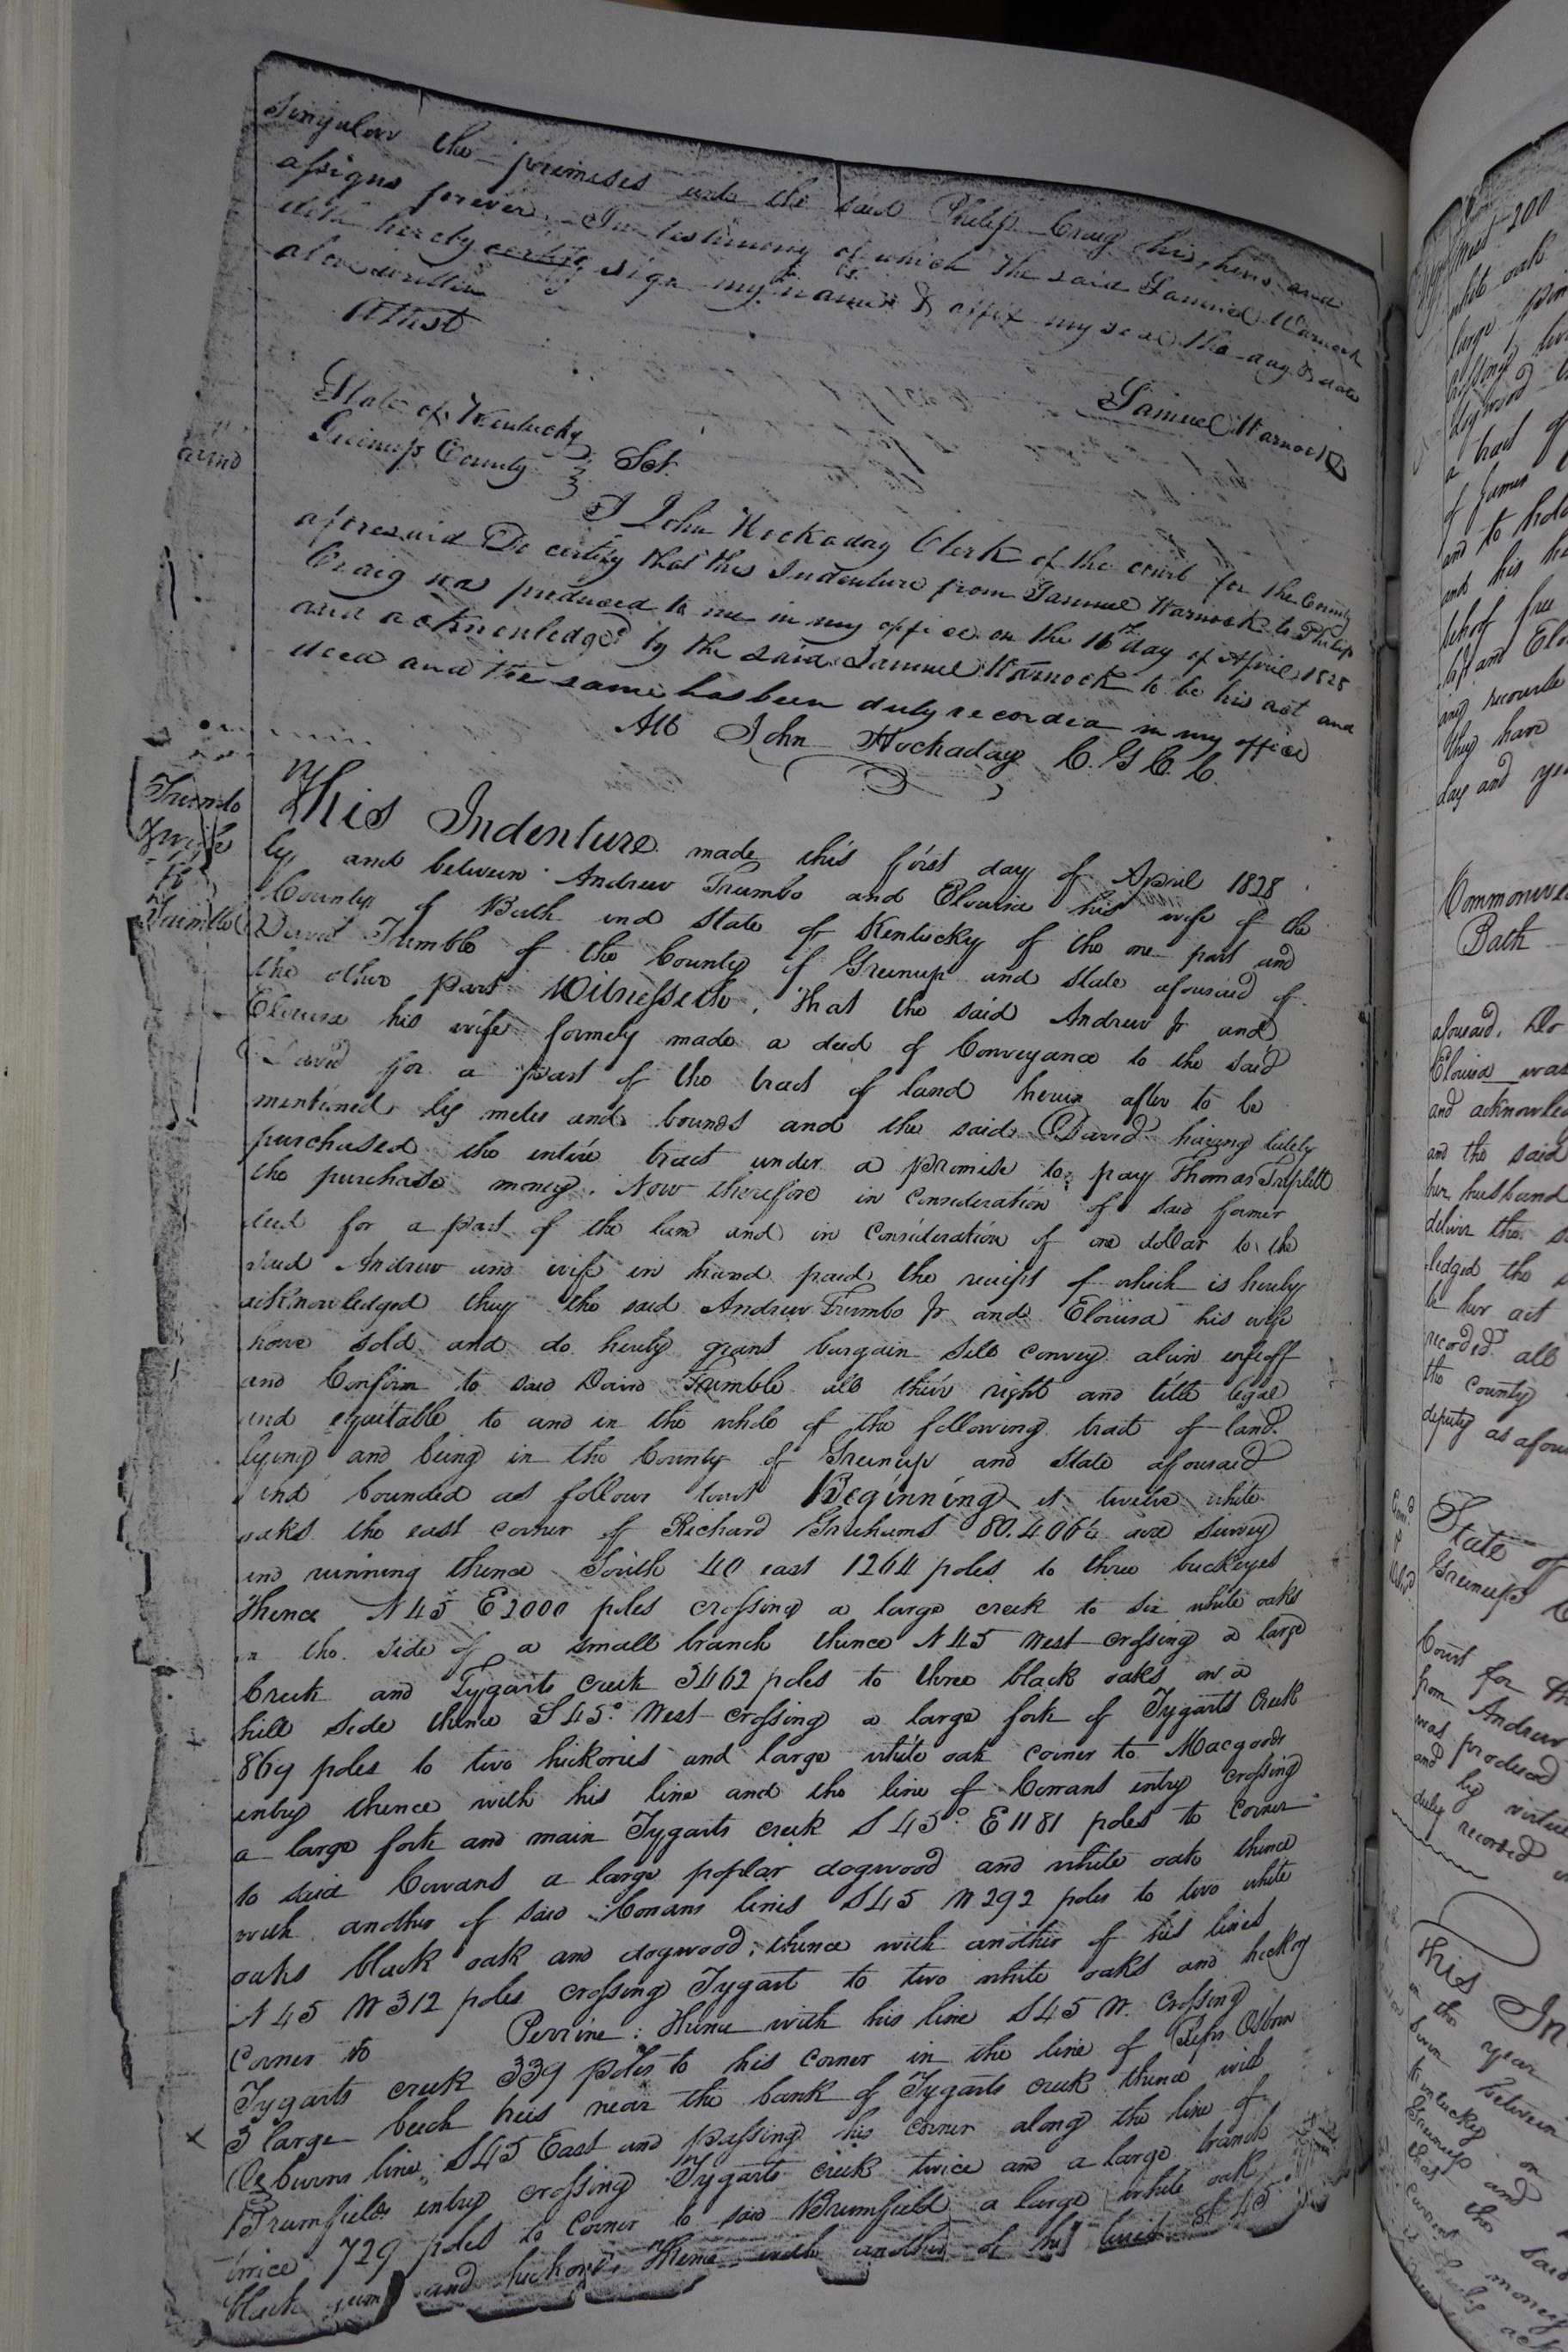 Singular the premises unto the said Philip Craig his heirs and
assigns forever. In testimony of which the said Samuel Warnock
doth hereby certify sign my name & affix my seal the day & date
above written
Attest
Samuel Warnock
State of Kentucky
Greenup County } Sct.
I John Hockaday Clerk of the court for the County
aforesaid Do certify that this Indenture from Samuel Warnock to Philip
Craig was produced to me in my office on the 16th day of April 1828
and acknowledged by the said Samuel Warnock to be his act and
deed and the same has been duly recorded in my office
Att John Hockaday C. G. C. C.
Trumbo
& wife
to
Trumbo
This Indenture made this first day of April 1828
by and between Andrew Trumbo and Elouisa his wife of the
County of Bath and State of Kentucky of the one part and
David Trumbo of the County of Greenup and State aforesaid of
the other part Witnesseth, That the said Andrew Jr and
Elouisa his wife formely made a deed of Conveyance to the said
David for a part of the tract of land herein after to be
mentioned by metes and bounds and the said David having lately
purchased the entire tract under a promise to pay Thomas Triplett
the purchase money. Now therefore in Consideration of said former
deed for a part of the land and in Consideration of one dollar to the
said Andrew and wife in hand paid the receipt of which is hereby
acknowledged they the said Andrew Trumbo Jr and Elouisa his wife
have sold and do hereby grant bargain sell convey alien enfeoff
and Confirm to said David Trumbo all their right and title legal
and equitable to and in the whole of the following tract of land
lying and being in the County of Greenup and State aforesaid
and bounded as follows towit Beginning at twelve white
oaks the east corner of Richard Grahams 80,406½ acre survey
and running thence South 40 east 1264 poles to three buckeyes
Thence N 45 E 2000 poles crossing a large creek to six white oaks
on the side of a small branch thence N 45 West crossing a large
Creek and Tygarts creek 3462 poles to three black oaks on a
hill side thence S 45° West crossing a large fork of Tygarts Creek
869 poles to two hickories and large white oak corner to Macgoods
entry thence with his line and the line of Cowans entry crossing
a large fork and main Tygarts creek S 45° E 1181 poles to corner
to said Cowans a large poplar dogwood and white oak thence
with another of said Cowans lines S 45 W 292 poles to two white
oaks black oak and dogwood; thence with another of his lines
N 45 W 312 poles crossing Tygart to two white oaks and hickory
Corner to Perrine: thence with his line S 45 W. crossing
Tygarts creek 339 poles to his corner in the line of Osborn
3 large beech trees near the bank of Tygarts creek thence with
Osburns line S 45 East and passing his corner along the line of
Brumfields entry crossing Tygarts creek twice and a large branch
twice 729 poles to corner to said Brumfield a large white oak
black gum and hickory. Thence with another of his lines S 45
west 200
white oak
large
crossing
dogwood
a tract of
of James
and to hold
and his he
behoof free
and Elou
any recourse
they have
day and ye
Commonwe
Bath
aforesaid. Do
Elouisa was
and acknowled
and the said
her husband
deliver the s
ledged the s
be her act
recorded all
the County
deputy as afore
State of
Greenup C
Court for th
from Andrew
was produced
and by virtue
duly recorded
This In
in the year
between
and
that the said
money